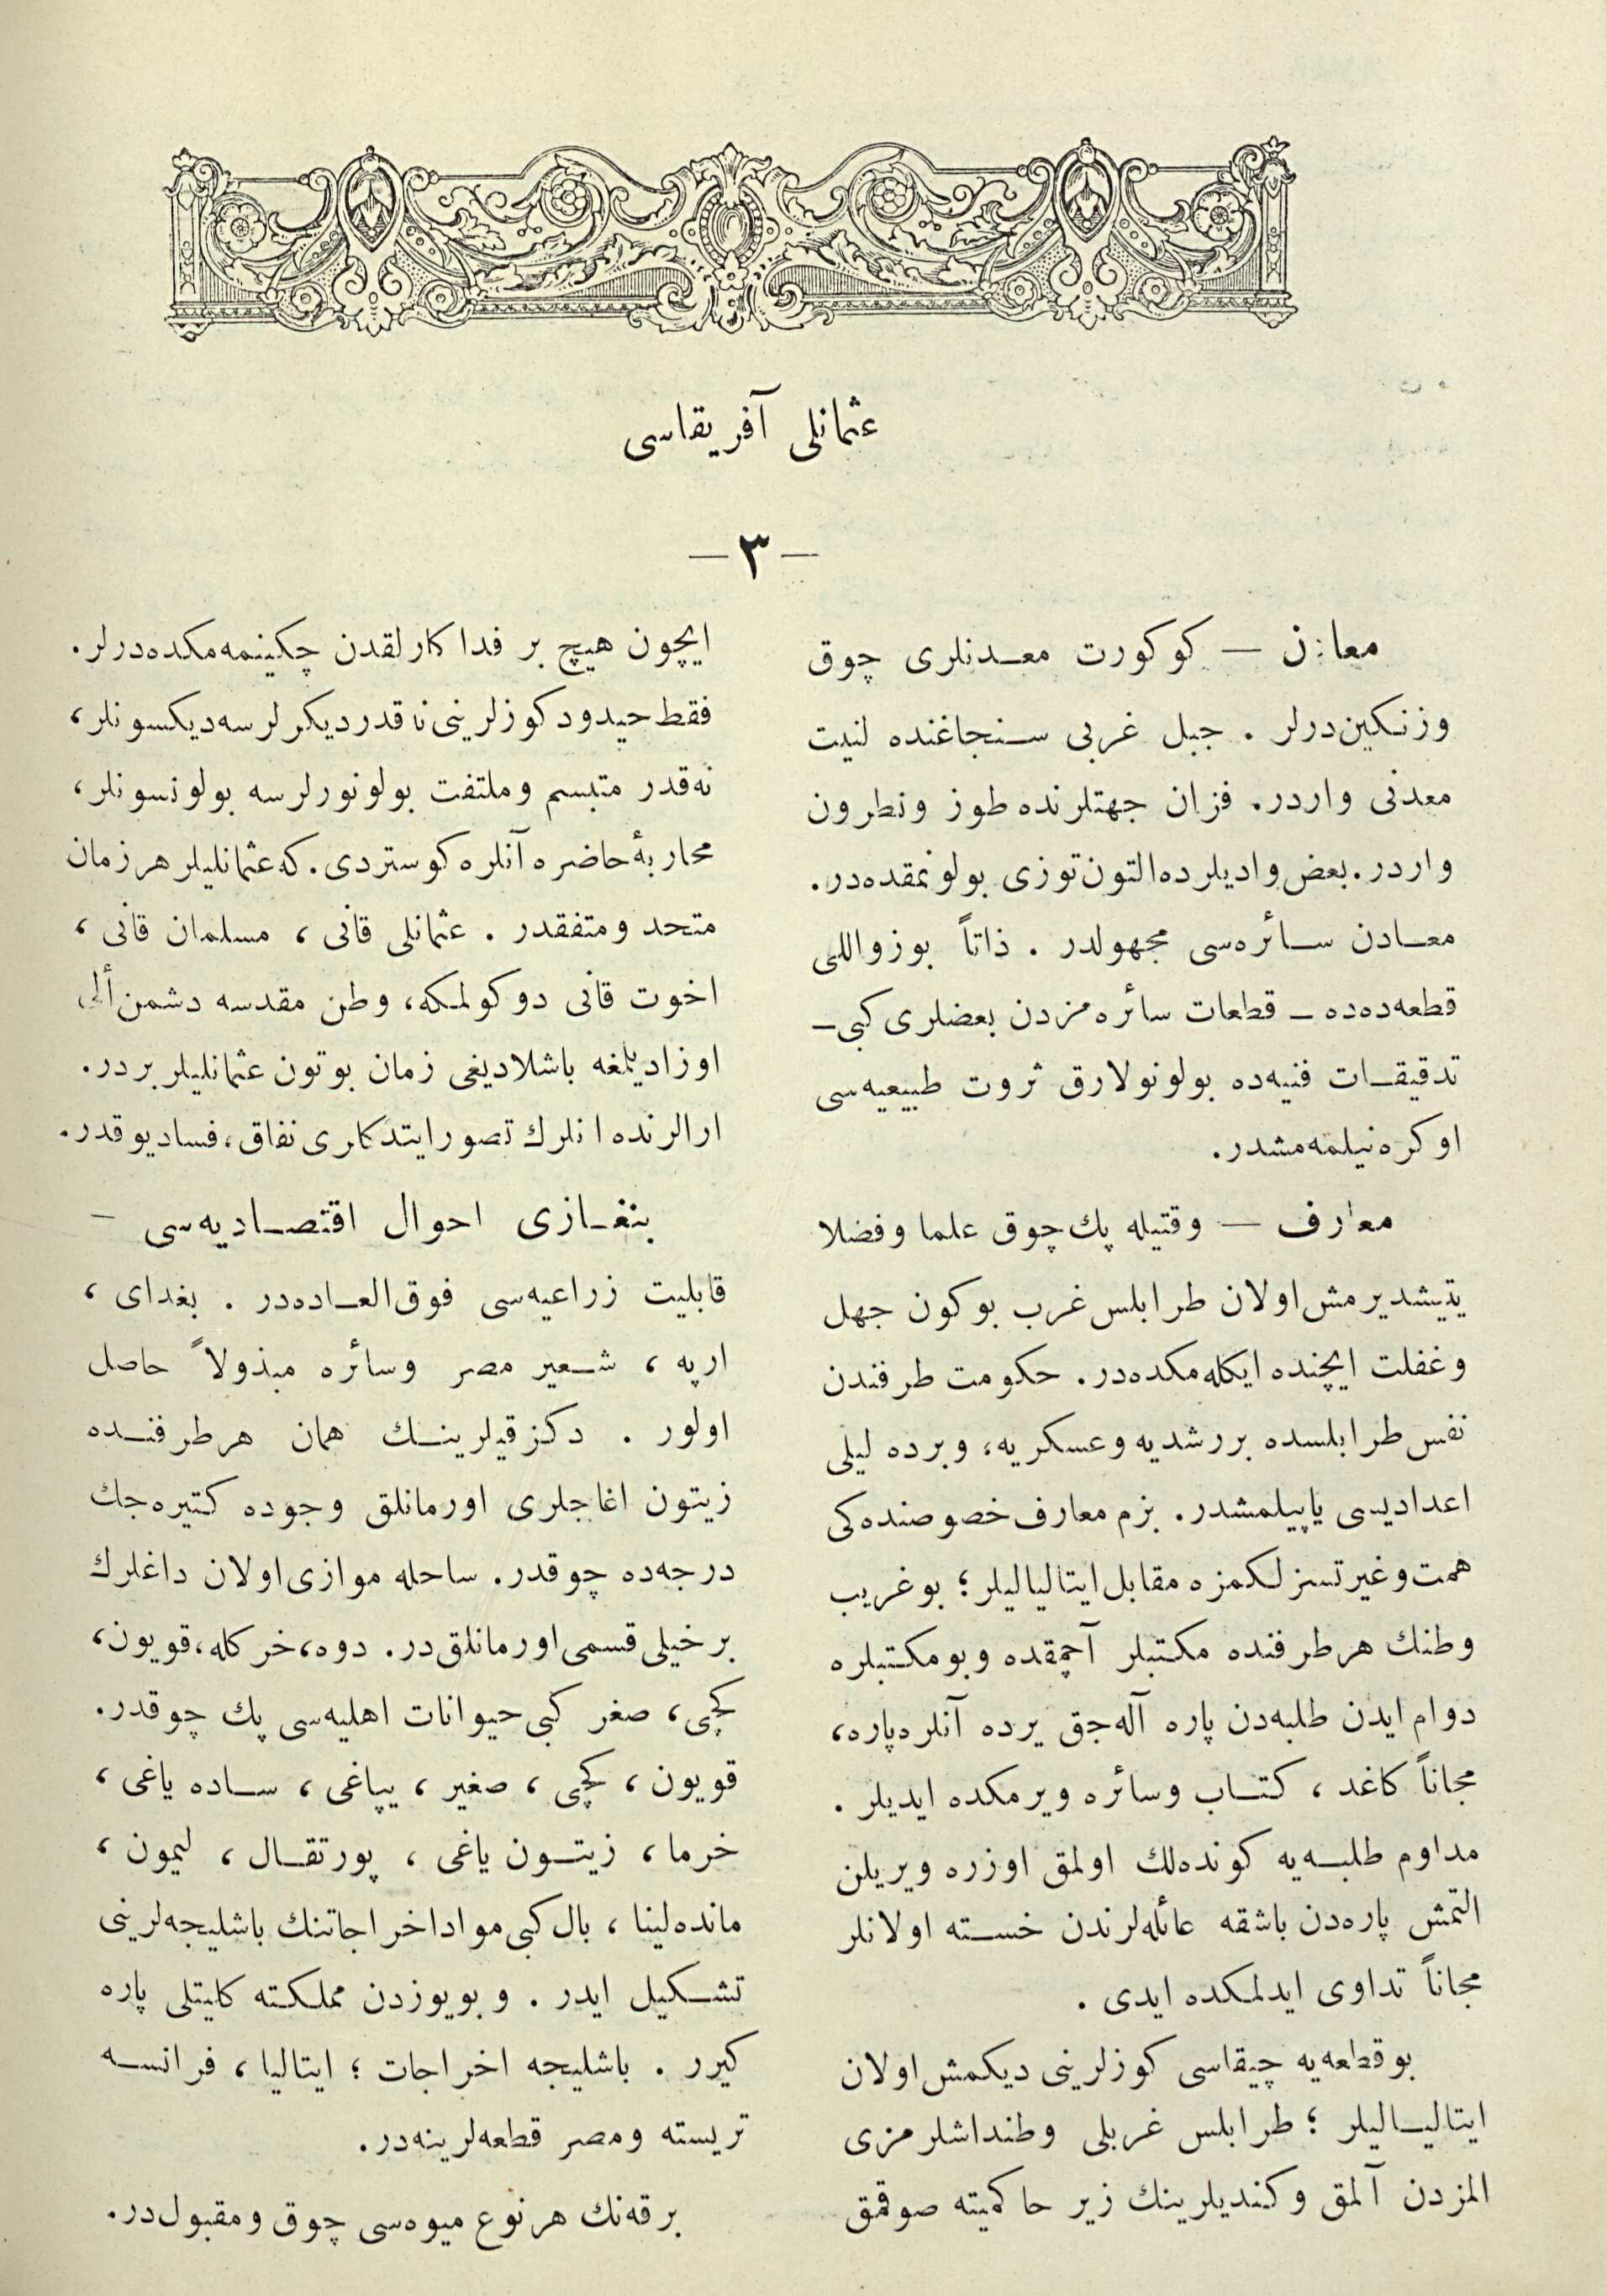 عثمانلی آفریقاسی
— ٣ —
معادن — کوکورت معدنلری چوق
وزنکین‌درلر . جبل غربی سنجاغنده لنیت
معدنی واردر. فزان جهتلرنده طوز ونطرون
واردر. بعض وادیلرده التون توزی بولونمقده‌در.
معادن سائره‌سی مجهولدر . ذاتاً بوزواللی
قطعه‌ده‌ده – قطعات سائره‌مزدن بعضلری کبی –
تدقیقات فنیه‌ده بولونولارق ثروت طبیعیه‌سی
اوکره‌نیلمه‌مشدر.
معارف — وقتیله پك چوق علما وفضلا
یتیشدیرمش اولان طرابلس غرب بوکون جهل
وغفلت ایچنده ایکله‌مکده‌در. حکومت طرفندن
نفس طرابلسده بررشدیه وعسکریه، وبرده لیلی
اعدادیسی یاپیلمشدر. بزم معارف خصوصنده‌کی
همت وغیرتسزلکمزه مقابل ایتالیالیلر؛ بوغریب
وطنك هرطرفنده مکتبلر آچمقده وبومکتبلره
دوام ایدن طلبه‌دن پاره آله‌جق یرده آنلره پاره،
مجاناً کاغد ، کتاب وسائره ویرمکده ایدیلر .
مداوم طلبه‌یه کونده‌لك اولمق اوزره ویریلن
التمش پاره‌دن باشقه عائله‌لرندن خسته اولانلر
مجاناً تداوی ایدلمکده ایدی .
بوقطعه‌یه چیقاسی کوزلرینی دیکمش اولان
ایتالیالیلر ؛ طرابلس غربلی وطنداشلرمزی
المزدن آلمق وکندیلرینك زیر حاکمیته صوقمق
ایچون هیچ بر فداکارلقدن چکینمه‌مکده‌درلر.
فقط حیدود کوزلرینی نه قدر دیکرلرسه دیکسونلر،
نه‌قدر متبسم وملتفت بولونورلرسه بولونسونلر،
محاربهٔ حاضره آنلره کوستردی. که عثمانلیلر هرزمان
متحد ومتفقدر . عثمانلی قانی ، مسلمان قانی ،
اخوت قانی دوکولمکه، وطن مقدسه دشمن ألی
اوزادیلمغه باشلادیغی زمان بوتون عثمانلیلر بردر.
ارالرنده انلرك تصور ایتدکاری نفاق، فساد یوقدر.
بنغازی احوال اقتصادیه‌سی –
قابلیت زراعیه‌سی فوق‌العاده‌در . بغدای ،
ارپه ، شعیر مصر وسائره مبذولاً حاصل
اولور . دکزقیلرینك همان هرطرفنده
زیتون اغاجلری اورمانلق وجوده کتیره‌جك
درجه‌ده چوقدر. ساحله موازی اولان داغلرك
برخیلی قسمی اورمانلق‌در. دوه، خرکله، قویون،
کچی، صغر کبی حیوانات اهلیه‌سی پك چوقدر.
قویون ، کچی ، صغیر ، یپاغی ، ساده یاغی ،
خرما ، زیتون یاغی ، پورتقال ، لیمون ،
مانده‌لینا ، بال کبی مواد اخراجاتنك باشلیجه‌لرینی
تشکیل ایدر . وبویوزدن مملکته کلیتلی پاره
کیرر . باشلیجه اخراجات ؛ ایتالیا ، فرانسه
تریسته ومصر قطعه‌لرینه‌در.
برقه‌نك هرنوع میوه‌سی چوق ومقبول‌در.